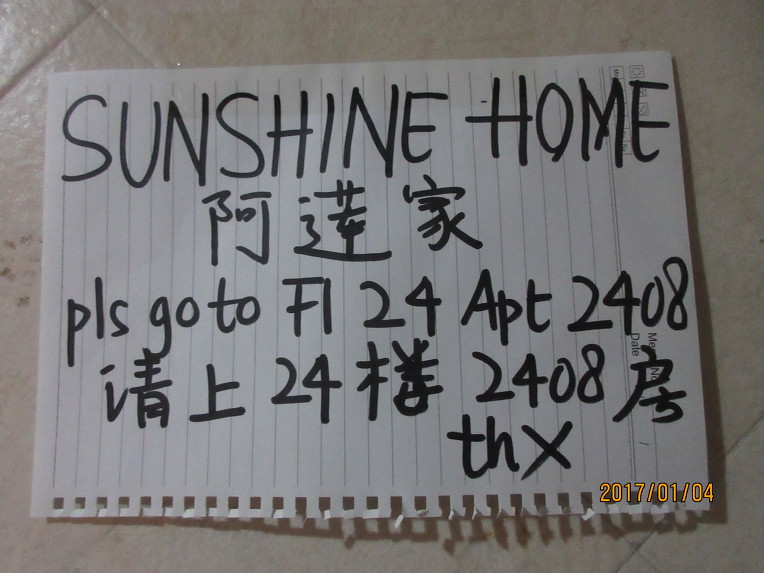 SUNSHINE HOME
阿莲家
pls go to Fl 24 Apt 2408
请上 24 楼 2408 房
thx
Date
2017/01/04